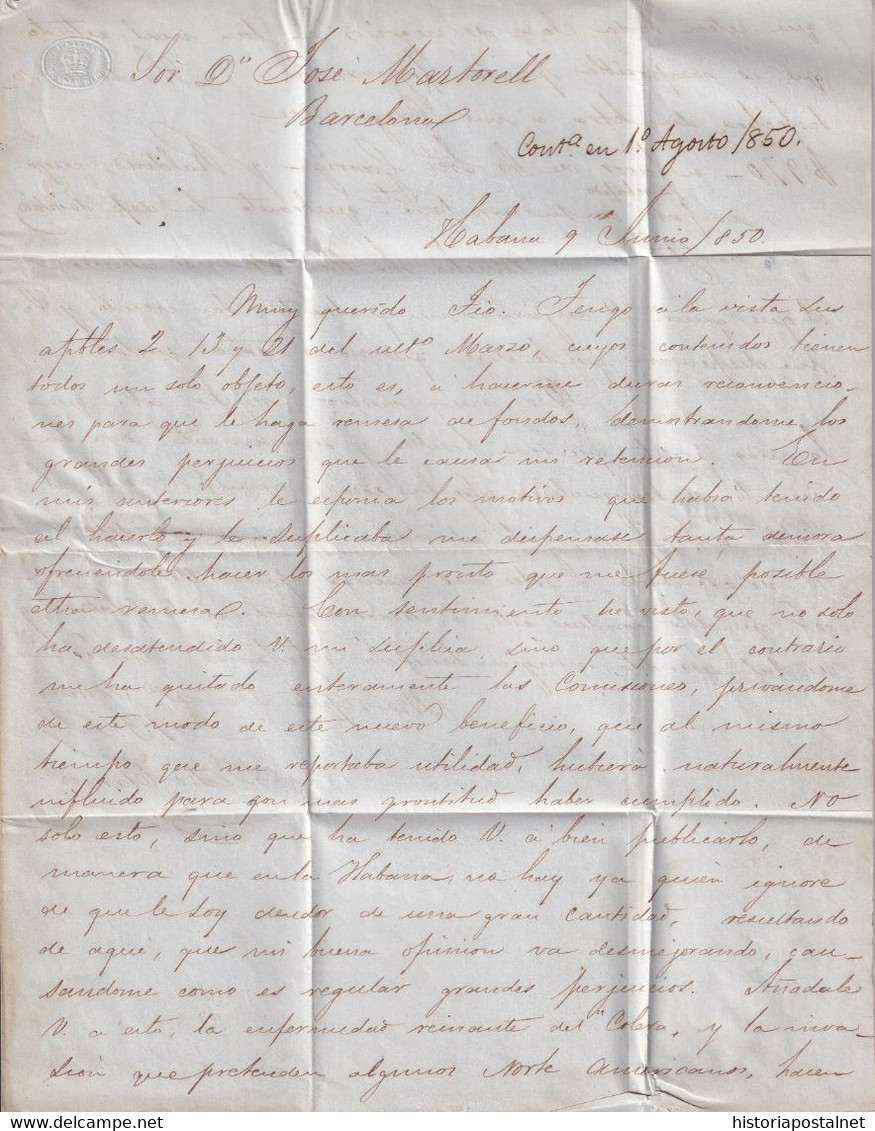 Sor Dn José Martorell
Barcelona
Conta. en 1º. Agosto/850.
Habana 9 Junio/850.
Muy querido Tio. Tengo á la vista sus
apbles 2. 13 y 21 del ulto. Marzo, cuyos contenidos tienen
todos un solo objeto, esto es, á hacerme duras reconvencio-
nes para que le haga remesa de fondos, demostrandome los
grandes perjuicios que le causa mi retencion. En
mis anteriores le esponia los motivos que habia tenido
al hacerlo y le suplicaba me dispensase tanta demora
ofreciendole hacer los mas pronto que me fuese posible
otra remesa. Con sentimiento he visto, que no solo
ha desatendido V. mi suplica, sino que por el contrario
me ha quitado enteramente las Comisiones, privandome
de este modo de este nuevo beneficio, que al mismo
tiempo que me reportaba utilidad, hubiera naturalmente
influido para con mas prontitud haber cumplido. No
solo esto, sino que ha tenido V. á bien publicarlo, de
manera que en la Habana, no hay ya quien ignore
de que le soy deudor de una gran cantidad, resultando
de aqui, que mi buena opinion va desmejorando, cau-
sandome como es regular grandes perjuicios. Añadale
V. a esto, la enfermedad reinante del Colera, y la inva-
sion que pretenden algunos Norte Americanos, hacen
historiapostalnet